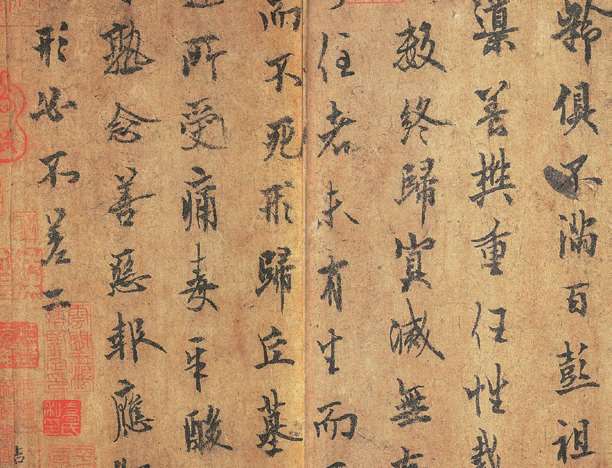 齡俱不滿百彭祖
導養樊重任性裁
數終歸冥滅無有
住者未有生而不
而不死形歸丘墓
所受痛毒辛酸
熟念善惡報應
形必不差二